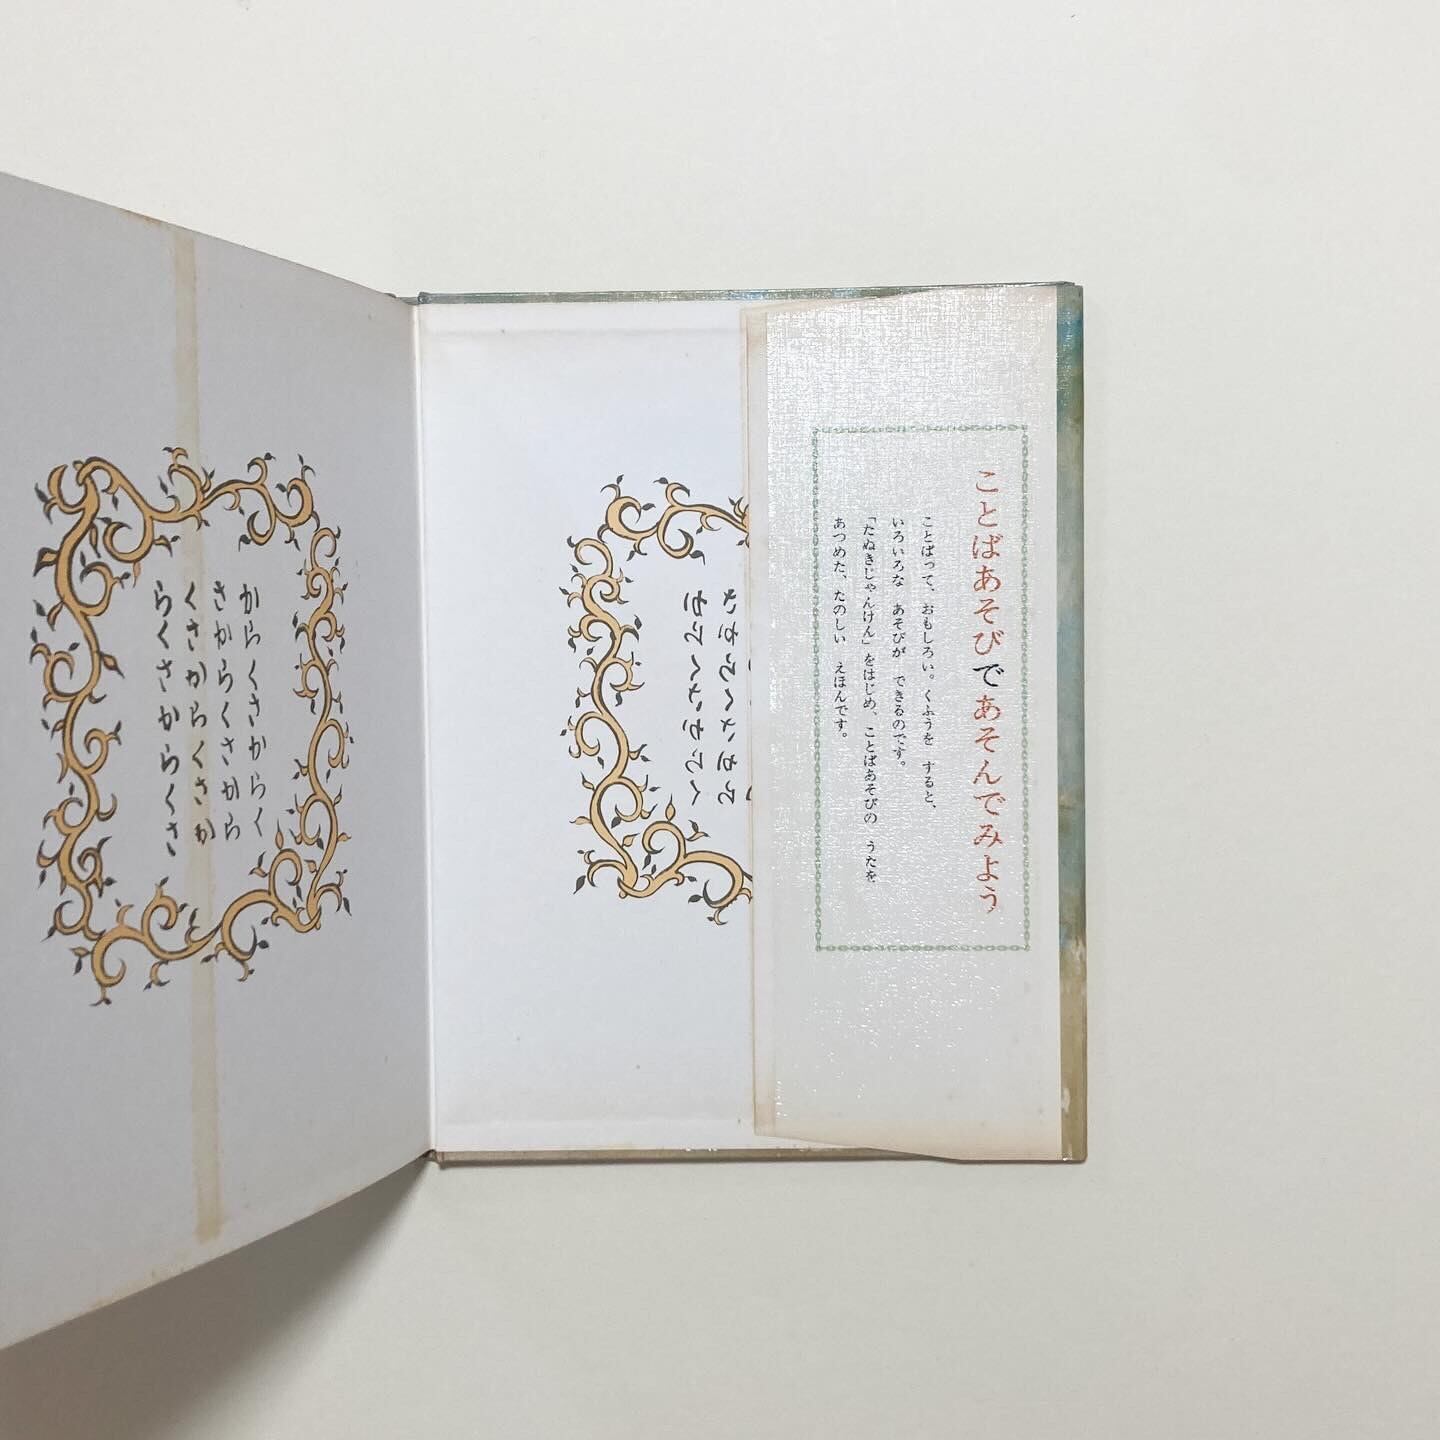 ことばあそびであそんでみよう
ことばって、おもしろい。くふうを　すると、
いろいろな　あそびが　できるのです。
「たぬきじゃんけん」をはじめ、ことばあそびの　うたを
あつめた、たのしい　えほんです。
からくさからく
さからくさから
くさからくさか
らくさからくさ